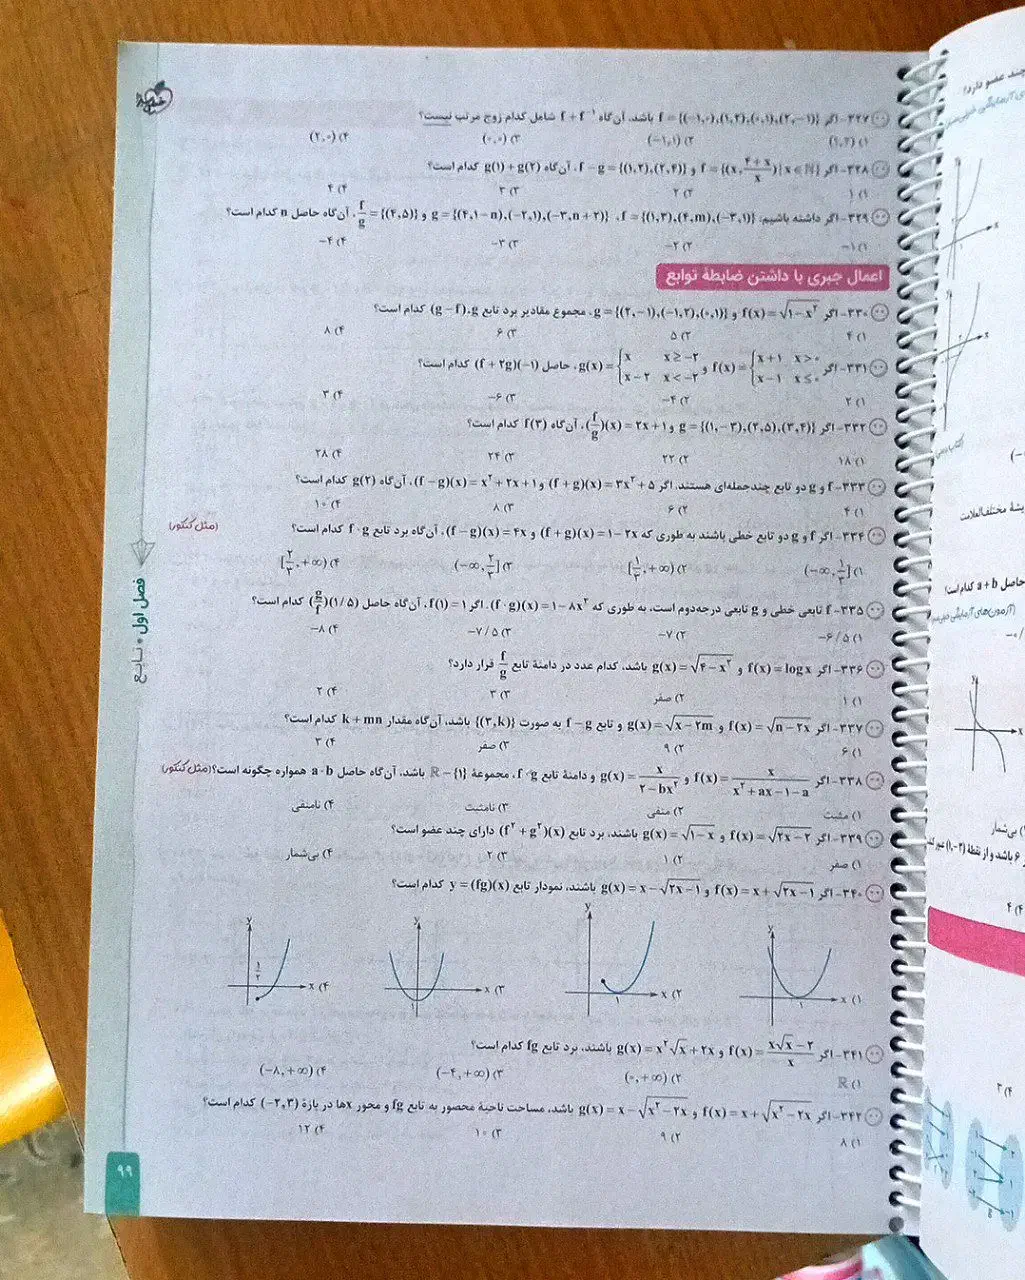 ۳۲۷- اگر f = {(−۱,۰),(۱,۲),(۰,۱),(۲,−۱)} باشد، آن‌گاه f + f⁻¹ شامل کدام زوج مرتب نیست؟
۱) (۱,۲) ۲) (−۱,۱) ۳) (۰,۰) ۴) (۲,۰)
۳۲۸- اگر f = {(x, (۴+x)/x) | x ∈ ℕ} و f − g = {(۱,۲),(۲,۴)}، آن‌گاه g(۱) + g(۲) کدام است؟
۱) ۱ ۲) ۲ ۳) ۳ ۴) ۴
۳۲۹- اگر داشته باشیم: f = {(۱,۳),(۴,m),(−۳,۱)}، g = {(۴,۱−n),(−۲,۱),(−۳,n+۲)} و f/g = {(۴,۵)}، آن‌گاه حاصل n کدام است؟
۱) −۱ ۲) −۲ ۳) −۳ ۴) −۴
اعمال جبری با داشتن ضابطهٔ توابع
۳۳۰- اگر f(x) = √(۱−x²) و g = {(۲,−۱),(−۱,۲),(۰,۱)}، مجموع مقادیر برد تابع (g − f).g کدام است؟
۱) ۴ ۲) ۵ ۳) ۶ ۴) ۸
۳۳۱- اگر f(x) = {x+۱ x>۰ ; x−۱ x≤۰ و g(x) = {x x≥−۲ ; x−۲ x<−۲، حاصل (f + ۲g)(−۱) کدام است؟
۱) ۲ ۲) −۴ ۳) −۶ ۴) ۳
۳۳۲- اگر g = {(۱,−۳),(۲,۵),(۳,۴)} و (f/g)(x) = ۲x+۱، آن‌گاه f(۳) کدام است؟
۱) ۱۸ ۲) ۲۲ ۳) ۲۴ ۴) ۲۸
۳۳۳- f و g دو تابع چندجمله‌ای هستند. اگر (f+g)(x) = ۳x²+۵ و (f−g)(x) = x²+۲x+۱، آن‌گاه g(۲) کدام است؟
۱) ۴ ۲) ۶ ۳) ۸ ۴) ۱۰
۳۳۴- اگر f و g دو تابع خطی باشند به طوری که (f+g)(x) = ۱−۲x و (f−g)(x) = ۴x، آن‌گاه برد تابع f·g کدام است؟ (مثل کنکور)
۱) (−∞, ۱/۳] ۲) [۱/۳, +∞) ۳) (−∞, ۲/۳] ۴) [۲/۳, +∞)
۳۳۵- f تابعی خطی و g تابعی درجه‌دوم است، به طوری که (f·g)(x) = ۱−۸x³. اگر f(۱) = ۱، آن‌گاه حاصل (g/f)(۱/۵) کدام است؟
۱) −۶/۵ ۲) −۷ ۳) −۷/۵ ۴) −۸
۳۳۶- اگر f(x) = log x و g(x) = √(۴−x²) باشد، کدام عدد در دامنهٔ تابع f/g قرار دارد؟
۱) ۱ ۲) صفر ۳) ۳ ۴) ۲
۳۳۷- اگر f(x) = √(n−۲x) و g(x) = √(x−۲m) و تابع f−g به صورت {(۳,k)} باشد، آن‌گاه مقدار k+mn کدام است؟
۱) ۶ ۲) ۹ ۳) صفر ۴) ۳
۳۳۸- اگر f(x) = x/(x²+ax−۱−a) و g(x) = x/(۲−bx²) و دامنهٔ تابع f·g، مجموعهٔ ℝ−{۱} باشد، آن‌گاه حاصل a·b همواره چگونه است؟ (مثل کنکور)
۱) مثبت ۲) منفی ۳) نامثبت ۴) نامنفی
۳۳۹- اگر f(x) = √(۲x−۲) و g(x) = √(۱−x) باشند، برد تابع (f²+g²)(x) دارای چند عضو است؟
۱) صفر ۲) ۱ ۳) ۲ ۴) بی‌شمار
۳۴۰- اگر f(x) = x+√(۲x−۱) و g(x) = x−√(۲x−۱) باشند، نمودار تابع y = (fg)(x) کدام است؟
y y y y
۱/۲
۱) x ۱ ۲) x ۱ ۳) x ۴) x
۳۴۱- اگر f(x) = (x√x−۲)/x و g(x) = x²√x+۲x باشند، برد تابع fg کدام است؟
۱) ℝ ۲) (۰,+∞) ۳) (−۴,+∞) ۴) (−۸,+∞)
۳۴۲- اگر f(x) = x+√(x²−۲x) و g(x) = x−√(x²−۲x) باشد، مساحت ناحیهٔ محصور به تابع fg و محور xها در بازهٔ (−۲,۳) کدام است؟
۱) ۸ ۲) ۹ ۳) ۱۰ ۴) ۱۲
فصل اول • تابع
۹۹
چند عضو دارد؟
ریشهٔ مختلف‌العلامت
حاصل a + b کدام است؟